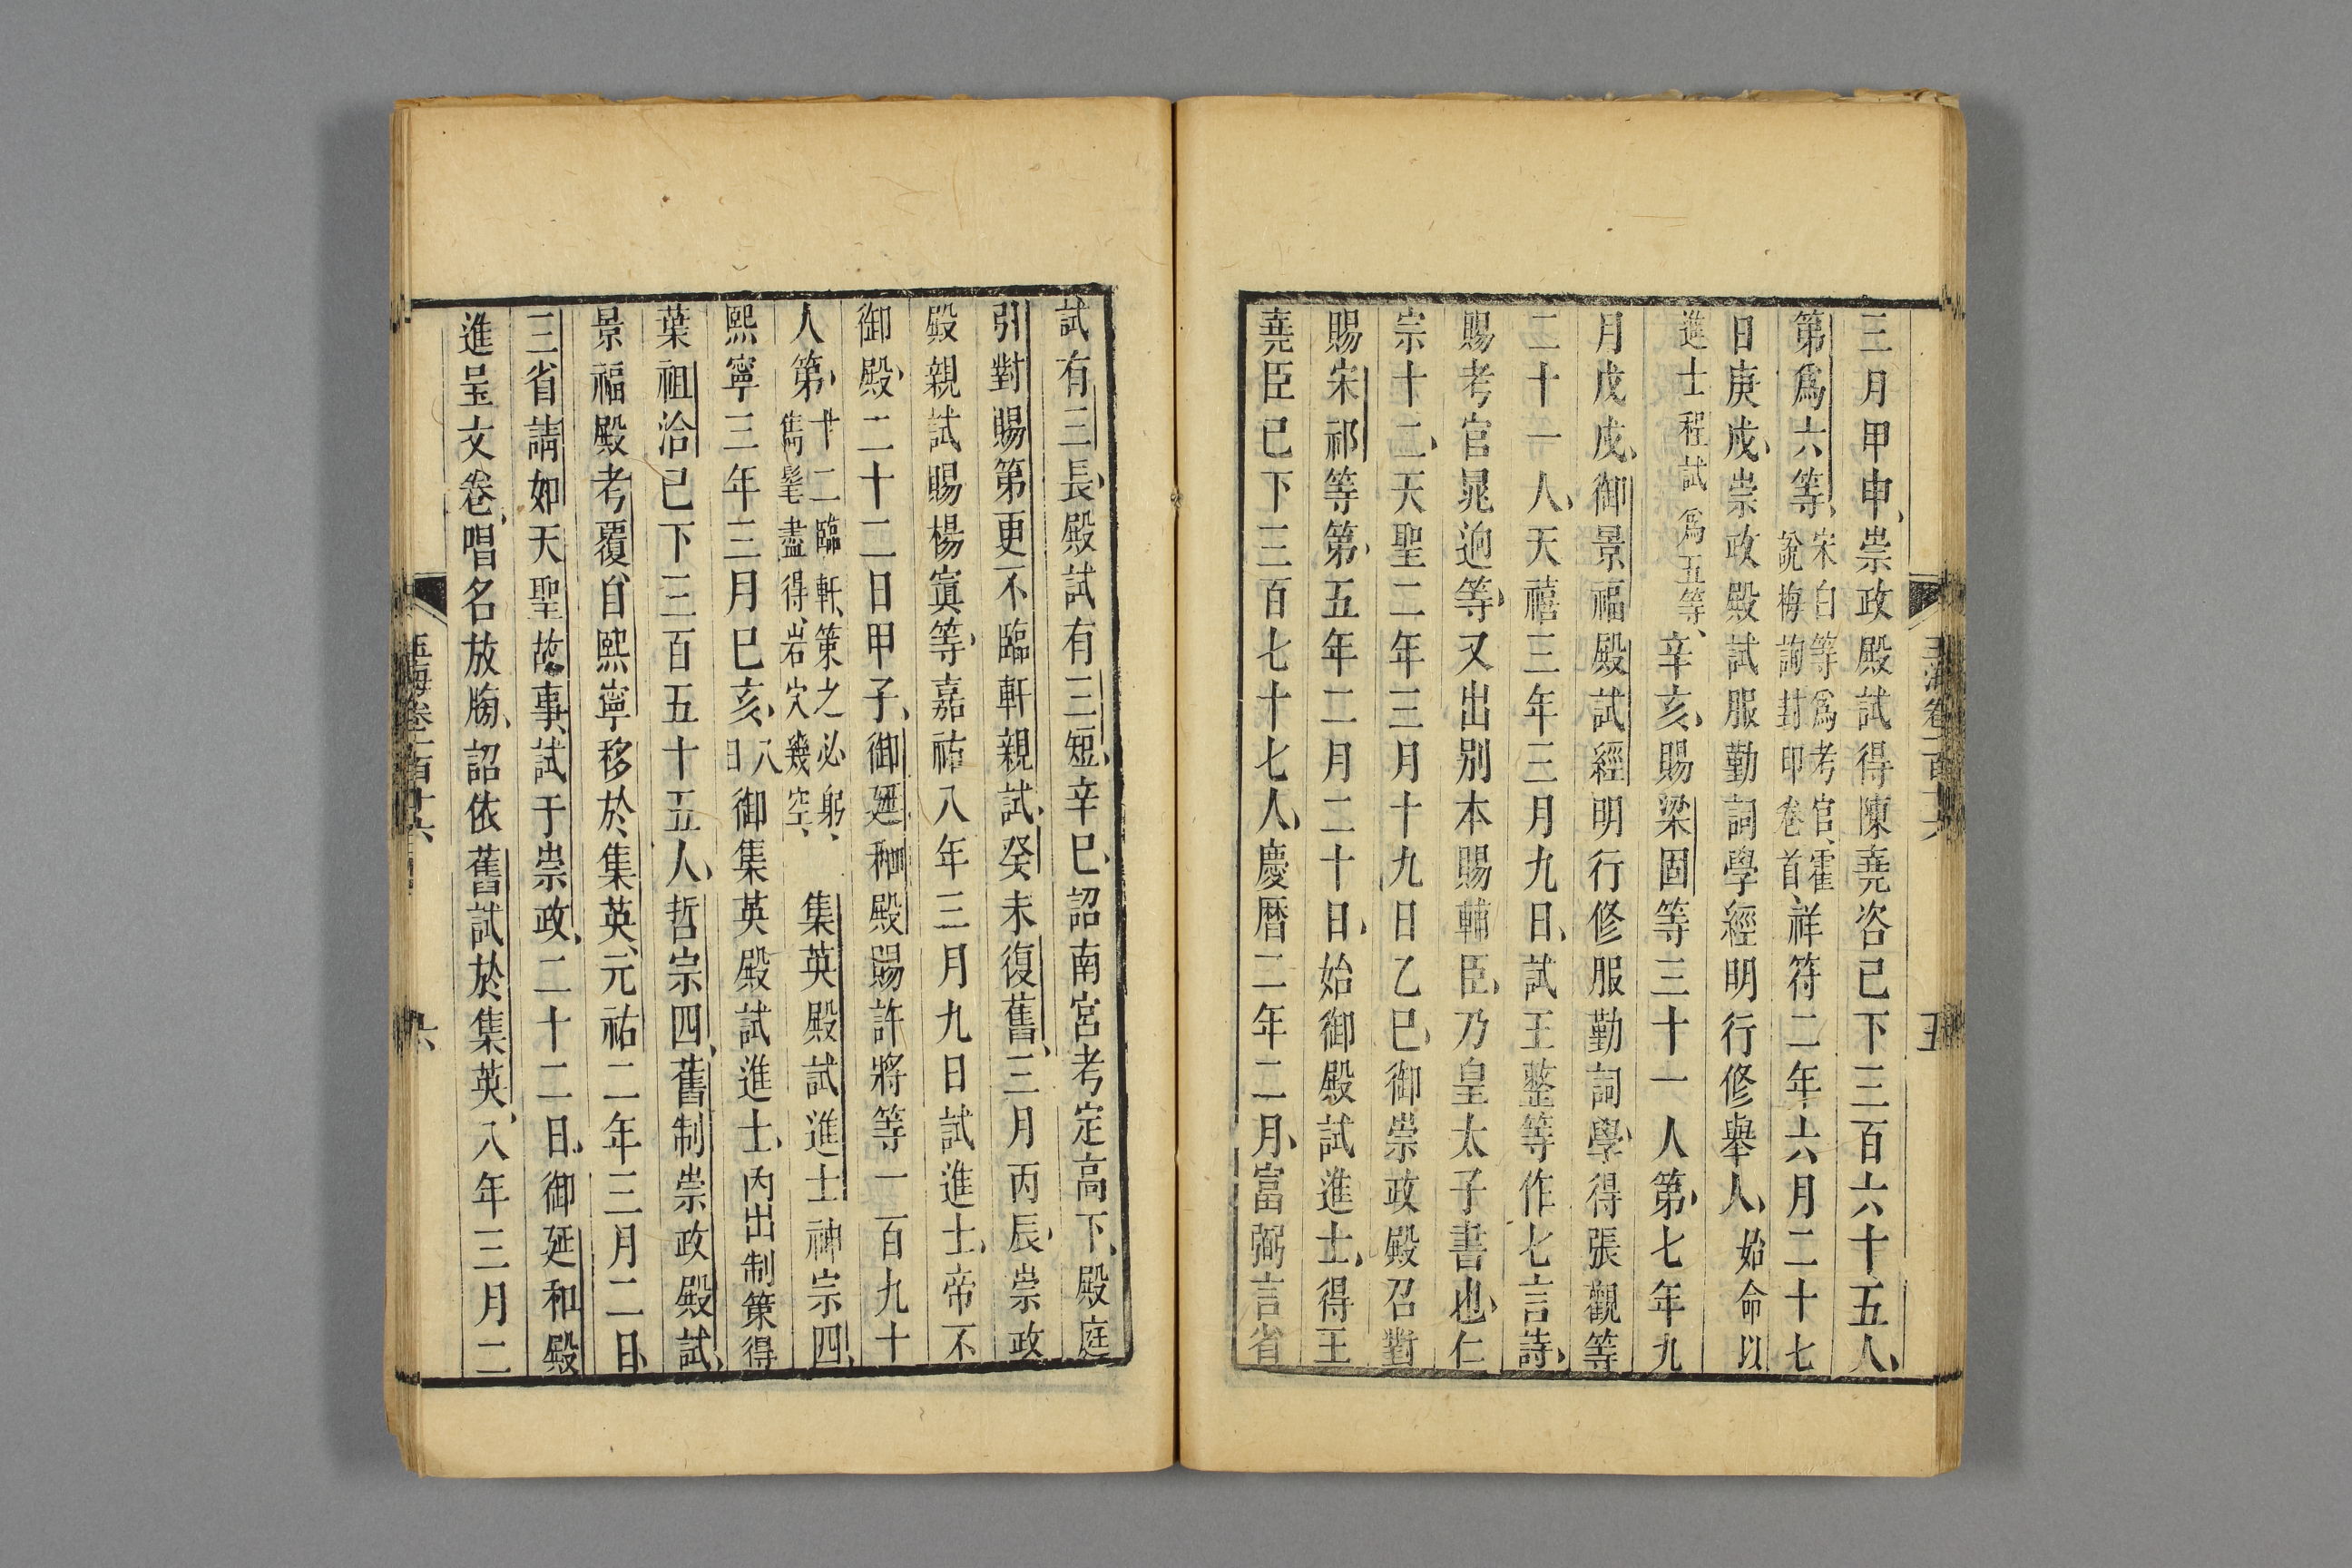 三月甲申崇政殿試得陳堯咨已下三百六十五人
第爲六等宋白等爲考官霍說梅詢封印卷首祥符二年六月二十七
日庚戍崇政殿試服勤詞學經明行修舉人始命以
進士程試爲五等辛亥賜梁固等三十一人第七年九
月戊戍御景福殿試經明行修服勤詞學得張觀等
二十一人天禧三年三月九日試王整等作七言詩
賜考官晁迥等又出別本賜輔臣乃皇太子書也仁
宗十二天聖二年三月十九日乙巳御崇政殿召對
賜宋祁等第五年二月二十日始御殿試進士得王
堯臣已下三百七十七人慶曆二年二月富弼言省
玉海卷一百十六
五
試有三長殿試有三短辛巳詔南宮考定高下殿庭
引對賜第更不臨軒親試癸未復舊三月丙辰崇政
殿親試賜楊寘等嘉祐八年三月九日試進士帝不
御殿二十二日甲子御延和殿賜許將等一百九十
人第十二臨軒策之必躬雋髦盡得岩穴幾空集英殿試進士神宗四
熙寧三年三月巳亥八日御集英殿試進士內出制策得
葉祖洽已下三百五十五人哲宗四舊制崇政殿試
景福殿考覆自熙寧移於集英元祐二年三月二日
三省請如天聖故事試于崇政二十二日御延和殿
進呈文卷唱名放牓詔依舊試於集英八年三月二
玉海卷一百十六
六